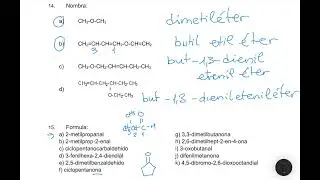 14. Nombra:
a) CH₃-O-CH₃
dimetiléter
b) CH₂=CH-CH=CH₂-O-CH=CH₂
butil etil éter
but-1,3-dienil
etenil éter
c) CH₃-O-CH₂-CH=CH-CH=CH₂
d)
but-1,3-dienileteniléter
15. Formula:
a) 2-metilpropanal
b) 2-metilprop-2-enal
c) ciclopentanocarbaldehído
d) 3-fenilhexa-2,4-dienidiál
e) 2,5-dimetilbenzaldehído
f) ciclopentanona
g) 3,3-dimetilbutanona
h) 2,6-dimetilhept-2-en-4-ona
i) 3-oxobutanal
j) difenilmetanona
k) 4,5-dibromo-2,6-dioxooctandial